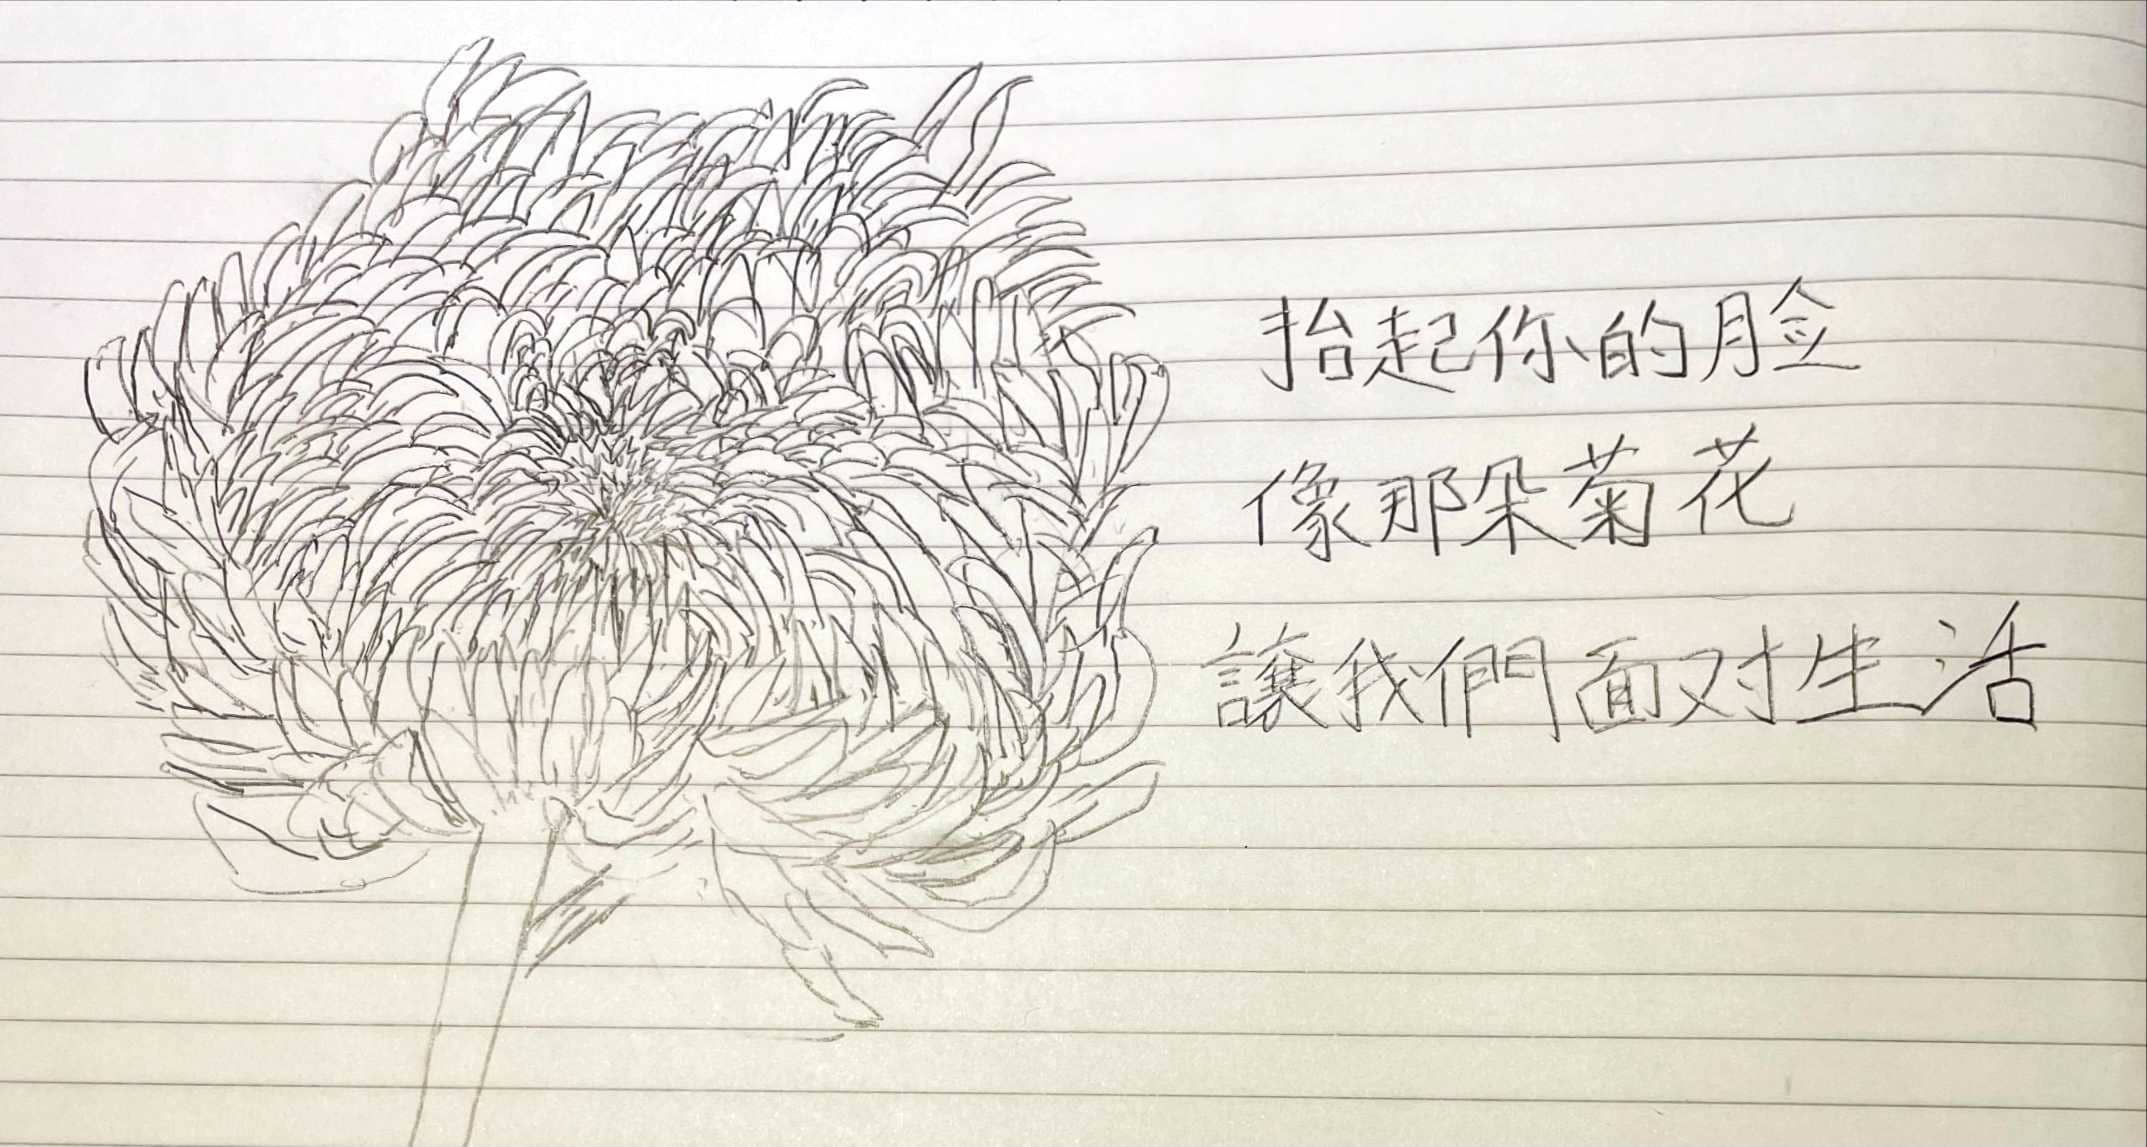 抬起你的脸
像那朵菊花
讓我們面对生活